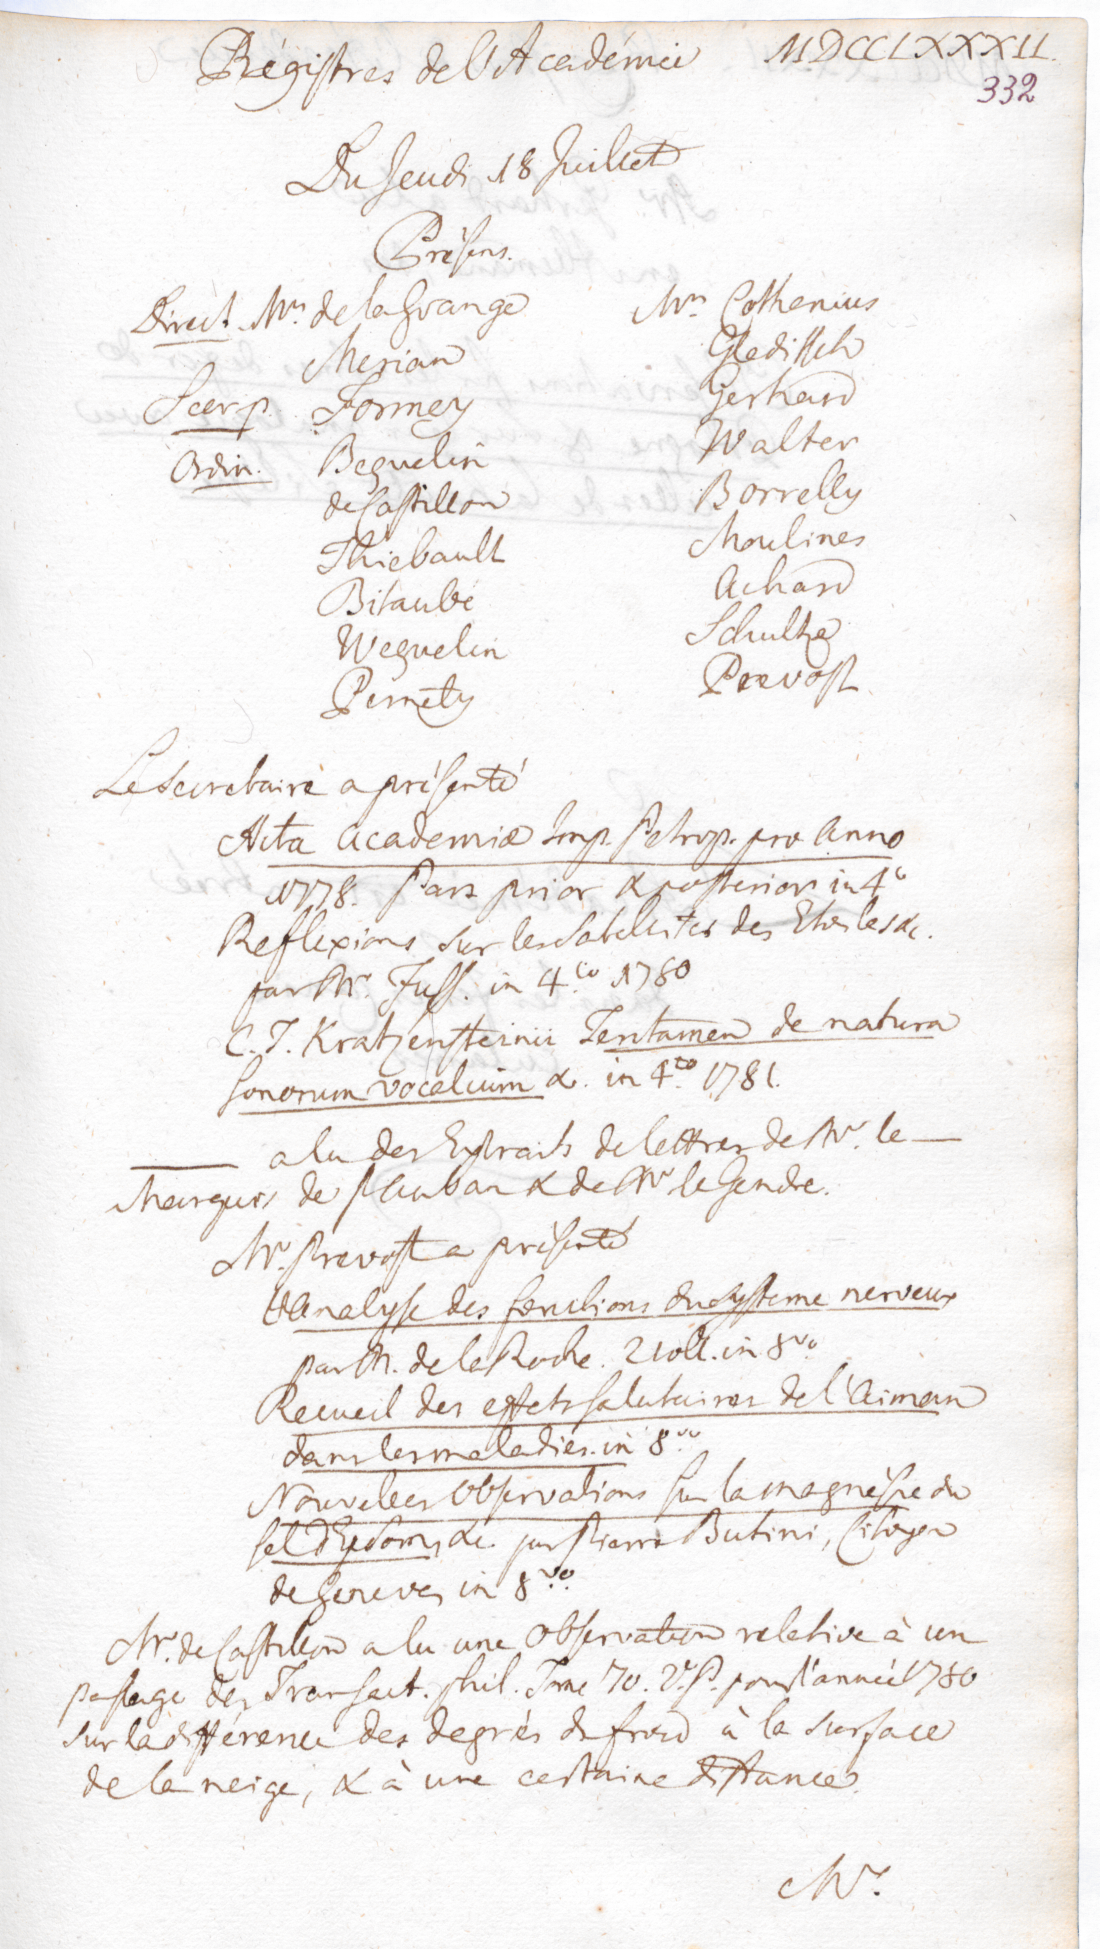 Régistres de l'Académie MDCCLXXXII.
332
Du Jeudi 18 Juillet
Présens.
Direct. Mrs. de la Grange
Merian
Secr. p. Formey
Ordin. Beguelin
de Castillon
Thiebault
Bitaubé
Weguelin
Pernety
Mrs. Cothenius
Gleditsch
Gerhard
Walter
Borrelly
Moulines
Achard
Schultze
Prevost
Le Secretaire a présenté
Acta Academiæ Imp. Petrop. pro Anno
1778. Pars prior & posterior in 4o
Reflexions sur les Satellites des Etoiles &c.
par Mr. Fuss. in 4to 1780
C. T. Kratzensteinii Tentamen de natura
sonorum vocalium &. in 4to 1781.
——— a lu des Extraits de lettres de Mr. le —
Marquis de & de Mr le Gendre.
Mr. Prevost a présenté
Analyse des fonctions du systeme nerveux
par M. de la Roche. 2 voll. in 8vo.
Recueil des effets salutaires de l'Aiman
dans les maladies. in 8vo
Nouvelles Observations sur la magnésie du
sel d'Epsom, &c. par Pierre Butini, Citoyen
de Geneve, in 8vo.
Mr. de Castillon a lu une Observation relative à un
passage des Transact. phil. Tome 70. 2e P. pour l'année 1780
sur la différence des degrés de froid à la surface
de la neige, & à une certaine distance.
Mr.